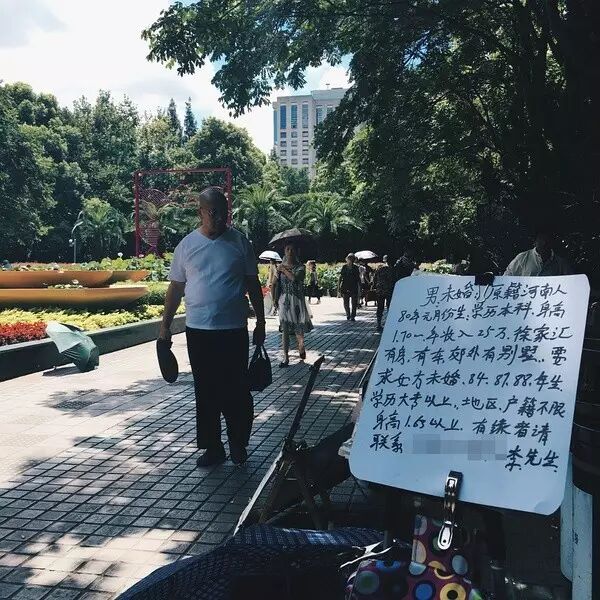 男未婚 原籍河南人
80年元月份生,学历本科,身高
1.70一年收入25万.徐家汇
有房,有车郊外有别墅.要
求女方未婚.84.87.88.年生
学历大专以上.地区.户籍不限
身高1.65以上.有缘者请
联系 李先生